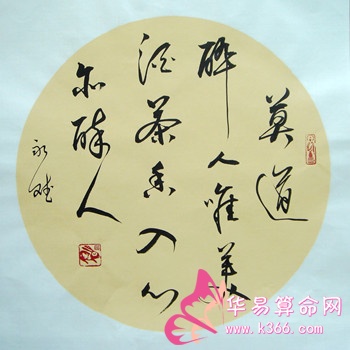 莫道
醉人唯美
酒茶香入心
亦醉人
永
华易算命网
www.k366.com